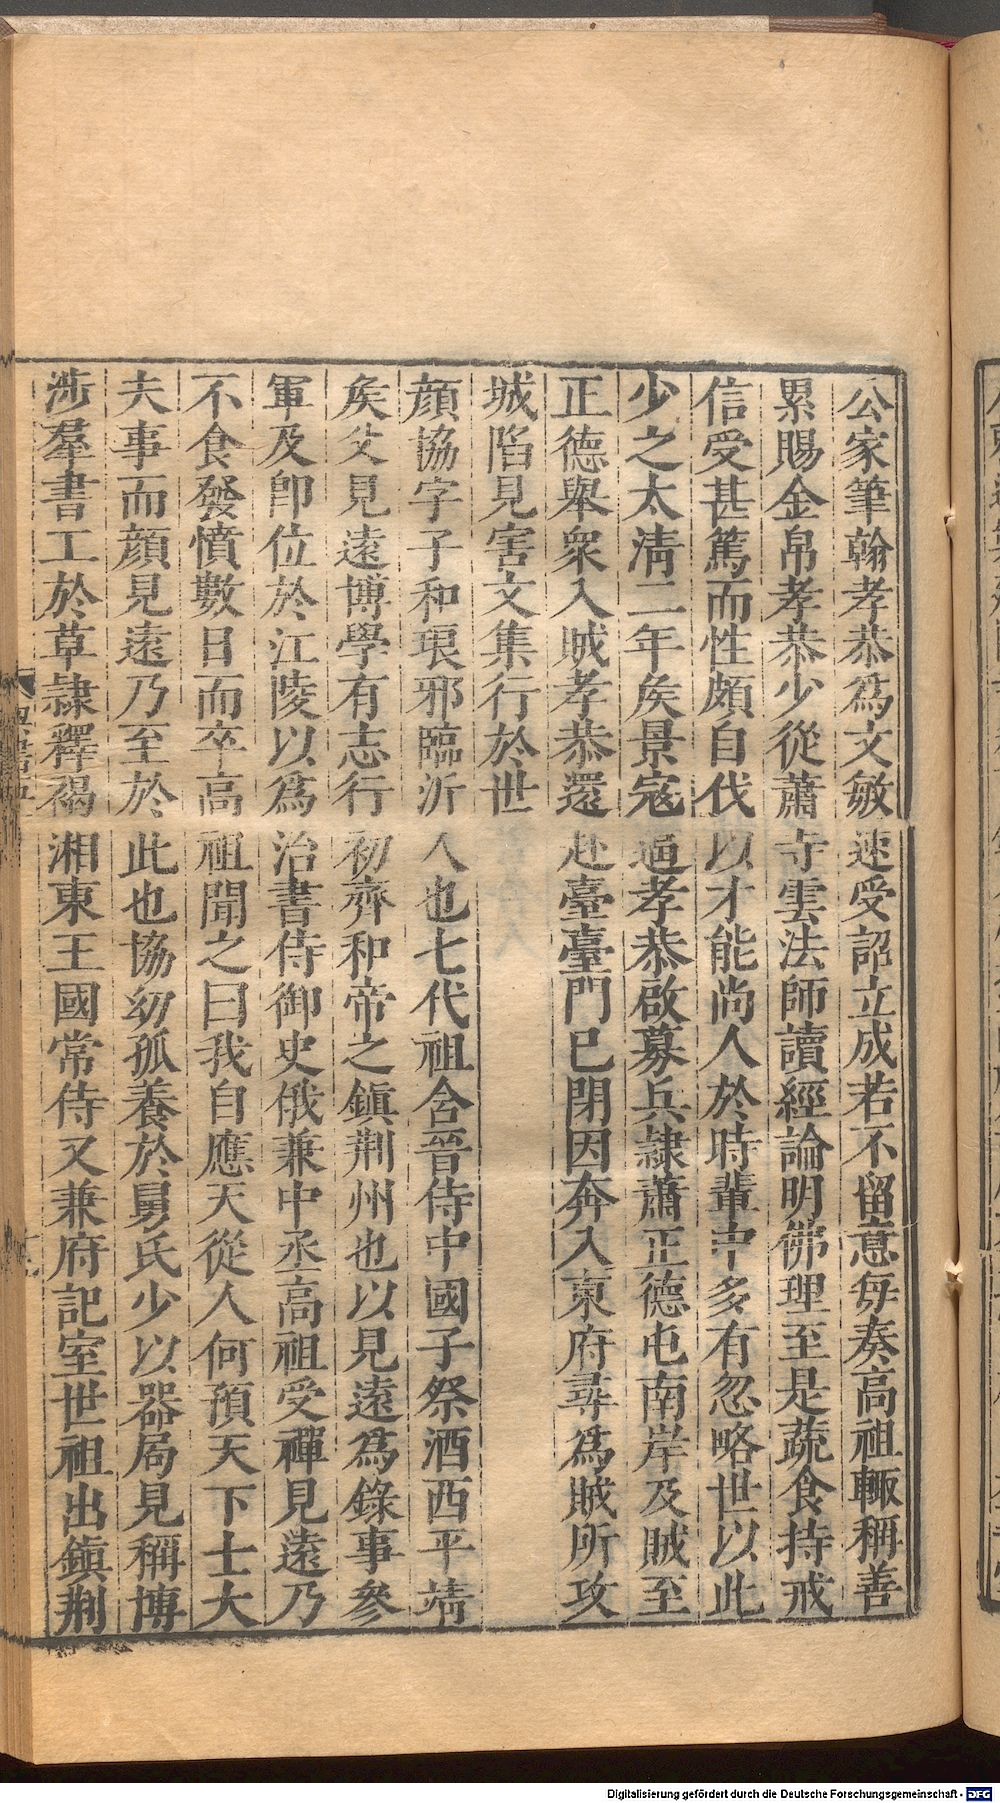 公家筆翰孝恭爲文敏速受詔立成若不留意每奏高祖輙稱善
累賜金帛孝恭少從蕭寺雲法師讀經論明佛理至是蔬食持戒
信受甚篤而性頗自伐以才能尚人於時輩中多有忽略世以此
少之太淸二年矦景寇逼孝恭啟募兵隷蕭正德屯南岸及賊至
正德舉衆入賊孝恭還赴臺臺門已閉因奔入東府尋爲賊所攻
城陷見害文集行於世
顔協字子和琅邪臨沂人也七代祖含晉侍中國子祭酒西平靖
矦父見遠博學有志行初齊和帝之鎭荆州也以見遠爲錄事參
軍及卽位於江陵以爲治書侍御史俄兼中丞高祖受禪見遠乃
不食發憤數日而卒高祖聞之曰我自應天從人何預天下士大
夫事而顔見遠乃至於此也協幼孤養於舅氏少以器局見稱博
涉羣書工於草隷釋褐湘東王國常侍又兼府記室世祖出鎭荆
Digitalisierung gefördert durch die Deutsche Forschungsgemeinschaft - DFG